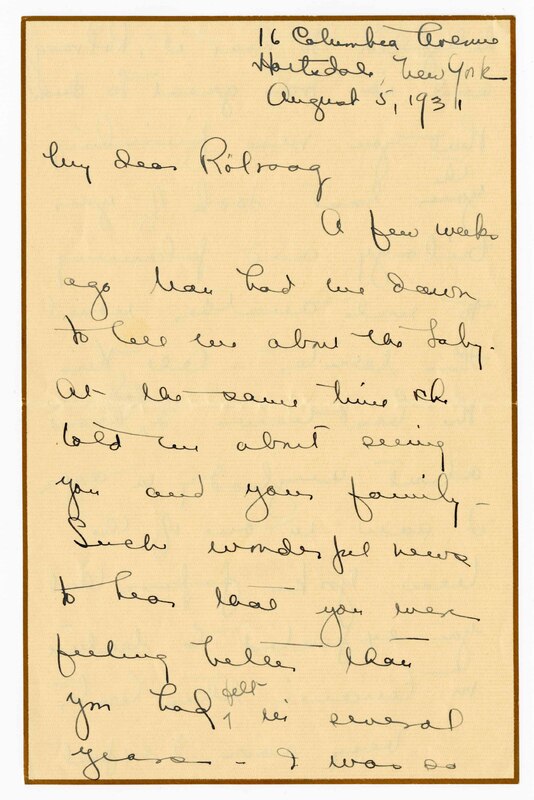 16 Columbia Avenue
Hartsdale, New York
August 5, 1931
My dear Rölvaag
A few weeks
ago Nan had me down
to tell me about the baby.
At the same time she
told me about seeing
you and your family –
Such wonderful news
to hear that you were
feeling better than
you had felt in several
years – I was so